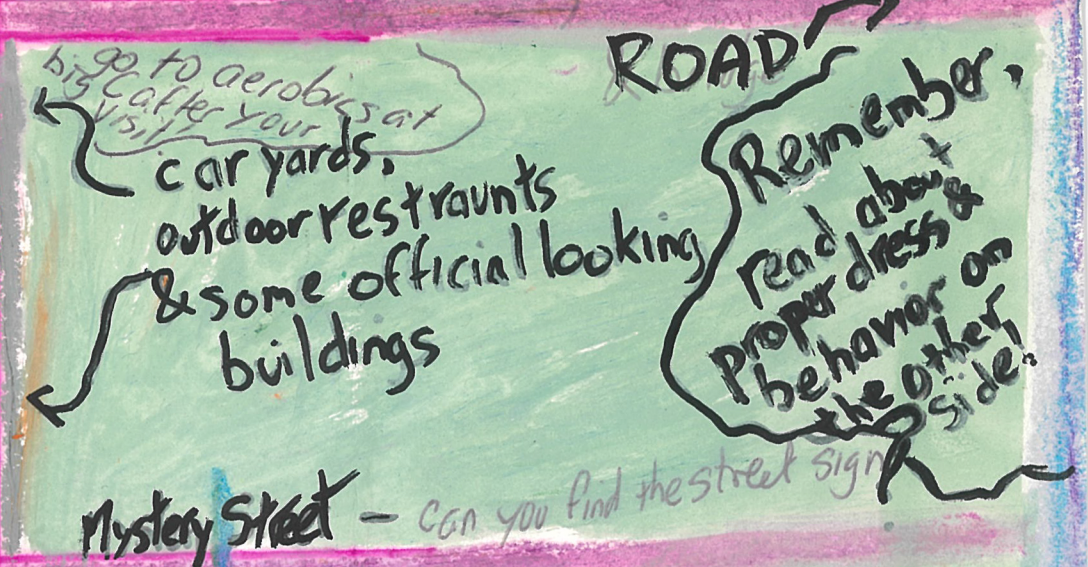 go to aerobics at
big C after your
visit!
car yards,
outdoor restraunts
& some official looking
buildings
ROAD
Remember,
read about
proper dress &
behavior on
the other
side!
Mystery Street - can you find the street sign